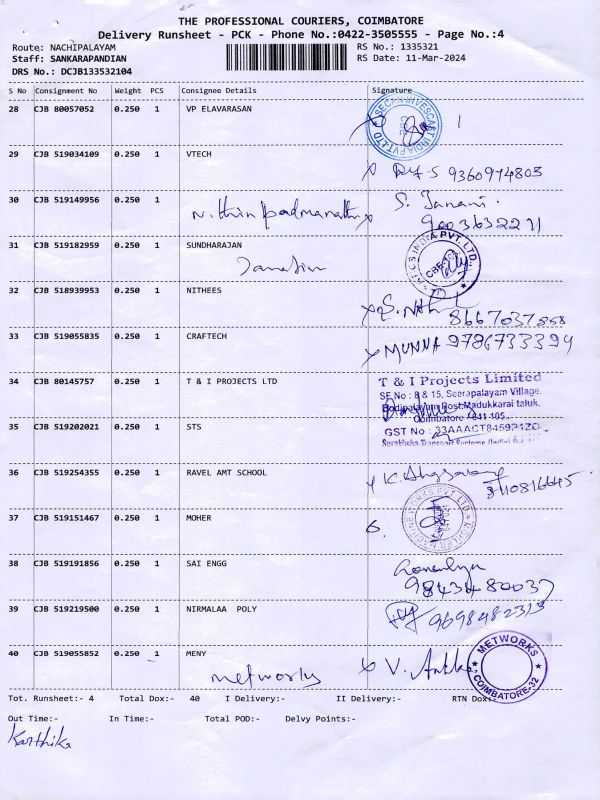 THE PROFESSIONAL COURIERS, COIMBATORE
Delivery Runsheet - PCK - Phone No.:0422-3505555 - Page No.:4
Route: NACHIPALAYAM RS No.: 1335321
Staff: SANKARAPANDIAN RS Date: 11-Mar-2024
DRS No.: DCJB133532104
S No Consignment No Weight PCS Consignee Details Signature
28 CJB 80057052 0.250 1 VP ELAVARASAN
29 CJB 519034109 0.250 1 VTECH
9360974803
30 CJB 519149956 0.250 1 S. Janani.
Nithin Padmanathan
31 CJB 519182959 0.250 1 SUNDHARAJAN
32 CJB 518939953 0.250 1 NITHEES
8667037858
33 CJB 519055835 0.250 1 CRAFTECH
MUNNA 9786733394
34 CJB 80145757 0.250 1 T & I PROJECTS LTD
T & I Projects Limited
SF No : 8 & 15, Seerapalayam Village.
Bodipalayam Post, Madukkarai taluk.
Coimbatore - 641 105.
35 CJB 519202021 0.250 1 STS
36 CJB 519254355 0.250 1 RAVEL AMT SCHOOL
37 CJB 519151467 0.250 1 MOHER
38 CJB 519191856 0.250 1 SAI ENGG
39 CJB 519219500 0.250 1 NIRMALAA POLY
9698482313
40 CJB 519055852 0.250 1 MENY
metworks
METWORKS
COIMBATORE-32
Tot. Runsheet:- 4 Total Dox:- 40 I Delivery:- II Delivery:- RTN Dox:-
Out Time:- In Time:- Total POD:- Delvy Points:-
Karthika